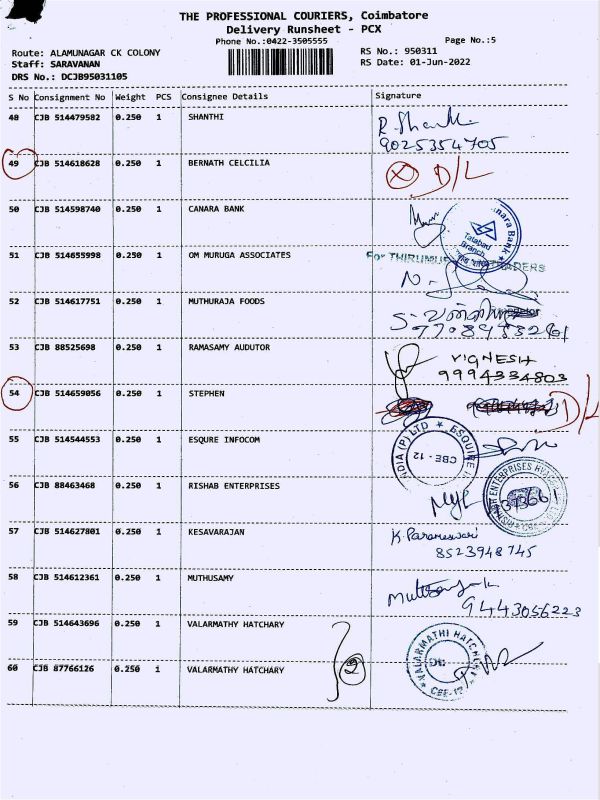 THE PROFESSIONAL COURIERS, Coimbatore
Delivery Runsheet - PCX
Phone No.:0422-3505555
Page No.:5
Route: ALAMUNAGAR CK COLONY
RS No.: 950311
Staff: SARAVANAN
RS Date: 01-Jun-2022
DRS No.: DCJB95031105
S No Consignment No Weight PCS Consignee Details Signature
48 CJB 514479582 0.250 1 SHANTHI
9025354705
49 CJB 514618628 0.250 1 BERNATH CELCILIA X D/L
50 CJB 514598740 0.250 1 CANARA BANK
Canara Bank
Branch
51 CJB 514655998 0.250 1 OM MURUGA ASSOCIATES
For TRADERS
52 CJB 514617751 0.250 1 MUTHURAJA FOODS
53 CJB 88525698 0.250 1 RAMASAMY AUDUTOR VIGNESH
9994334803
54 CJB 514659056 0.250 1 STEPHEN D/L
55 CJB 514544553 0.250 1 ESQURE INFOCOM
CBE - 12
56 CJB 88463468 0.250 1 RISHAB ENTERPRISES
57 CJB 514627801 0.250 1 KESAVARAJAN K. Parameswari
8523948745
58 CJB 514612361 0.250 1 MUTHUSAMY
9443056223
59 CJB 514643696 0.250 1 VALARMATHY HATCHARY
2
VALARMATHI HATCHERY
CBE-12
60 CJB 87766126 0.250 1 VALARMATHY HATCHARY